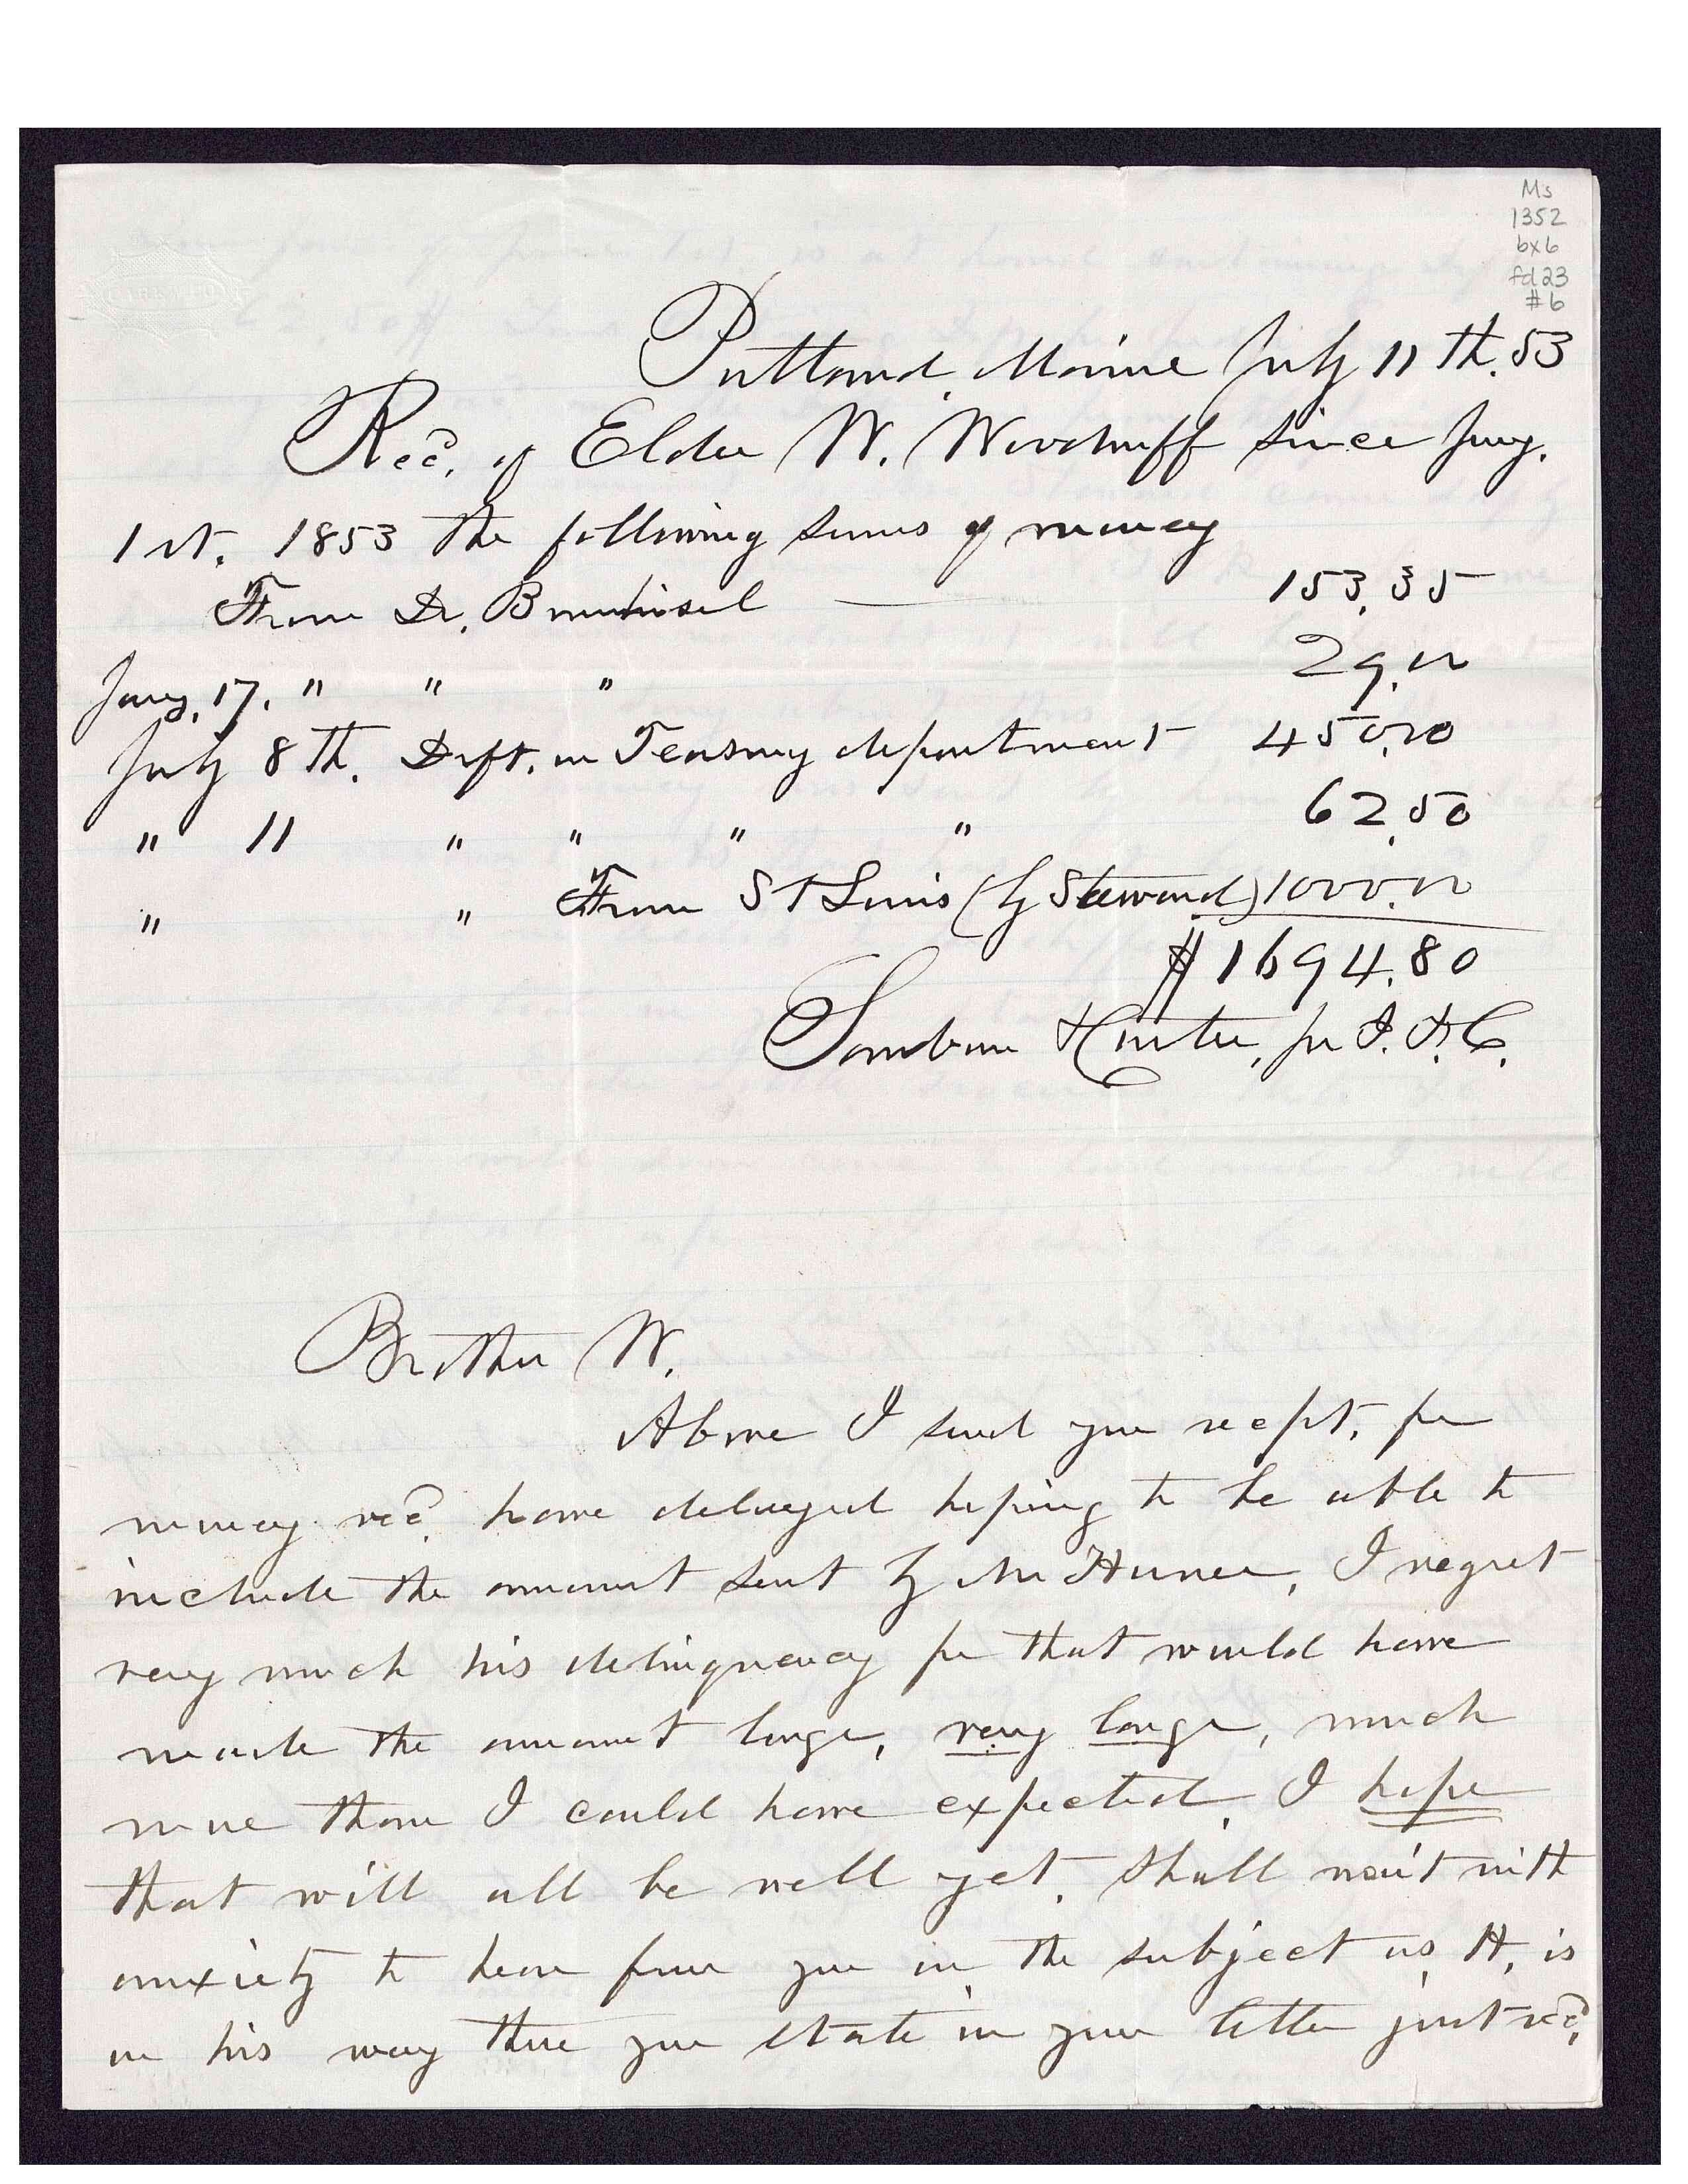 Ms
1352
bx6
fd23
#6
Portland, Maine July 11th. 53
Recd. of Elder W. Woodruff since Jany.
1st. 1853 the following sums of money
From Dr. Bernhisel — 153,35
Jany. 17. " " " 29,00
July 8th. Dft. on Teasury department 450,00
" 11 " " " " 62,50
" " From St Louis (by Steward) 1000,00
$1694.80
Sanborn & Carter, pr I. F. C.
Brother W.
Above I send you recpt, for
money recd. have delayed hoping to be able to
include the amount sent by Mr Hunee, I regret
very much his delinquency for that would have
made the amount large, very large, much
more than I could have expected, I hope
that will all be well yet, shall wait with
anxiety to hear from you on the subject as H, is
on his way there you state in your letter just recd.